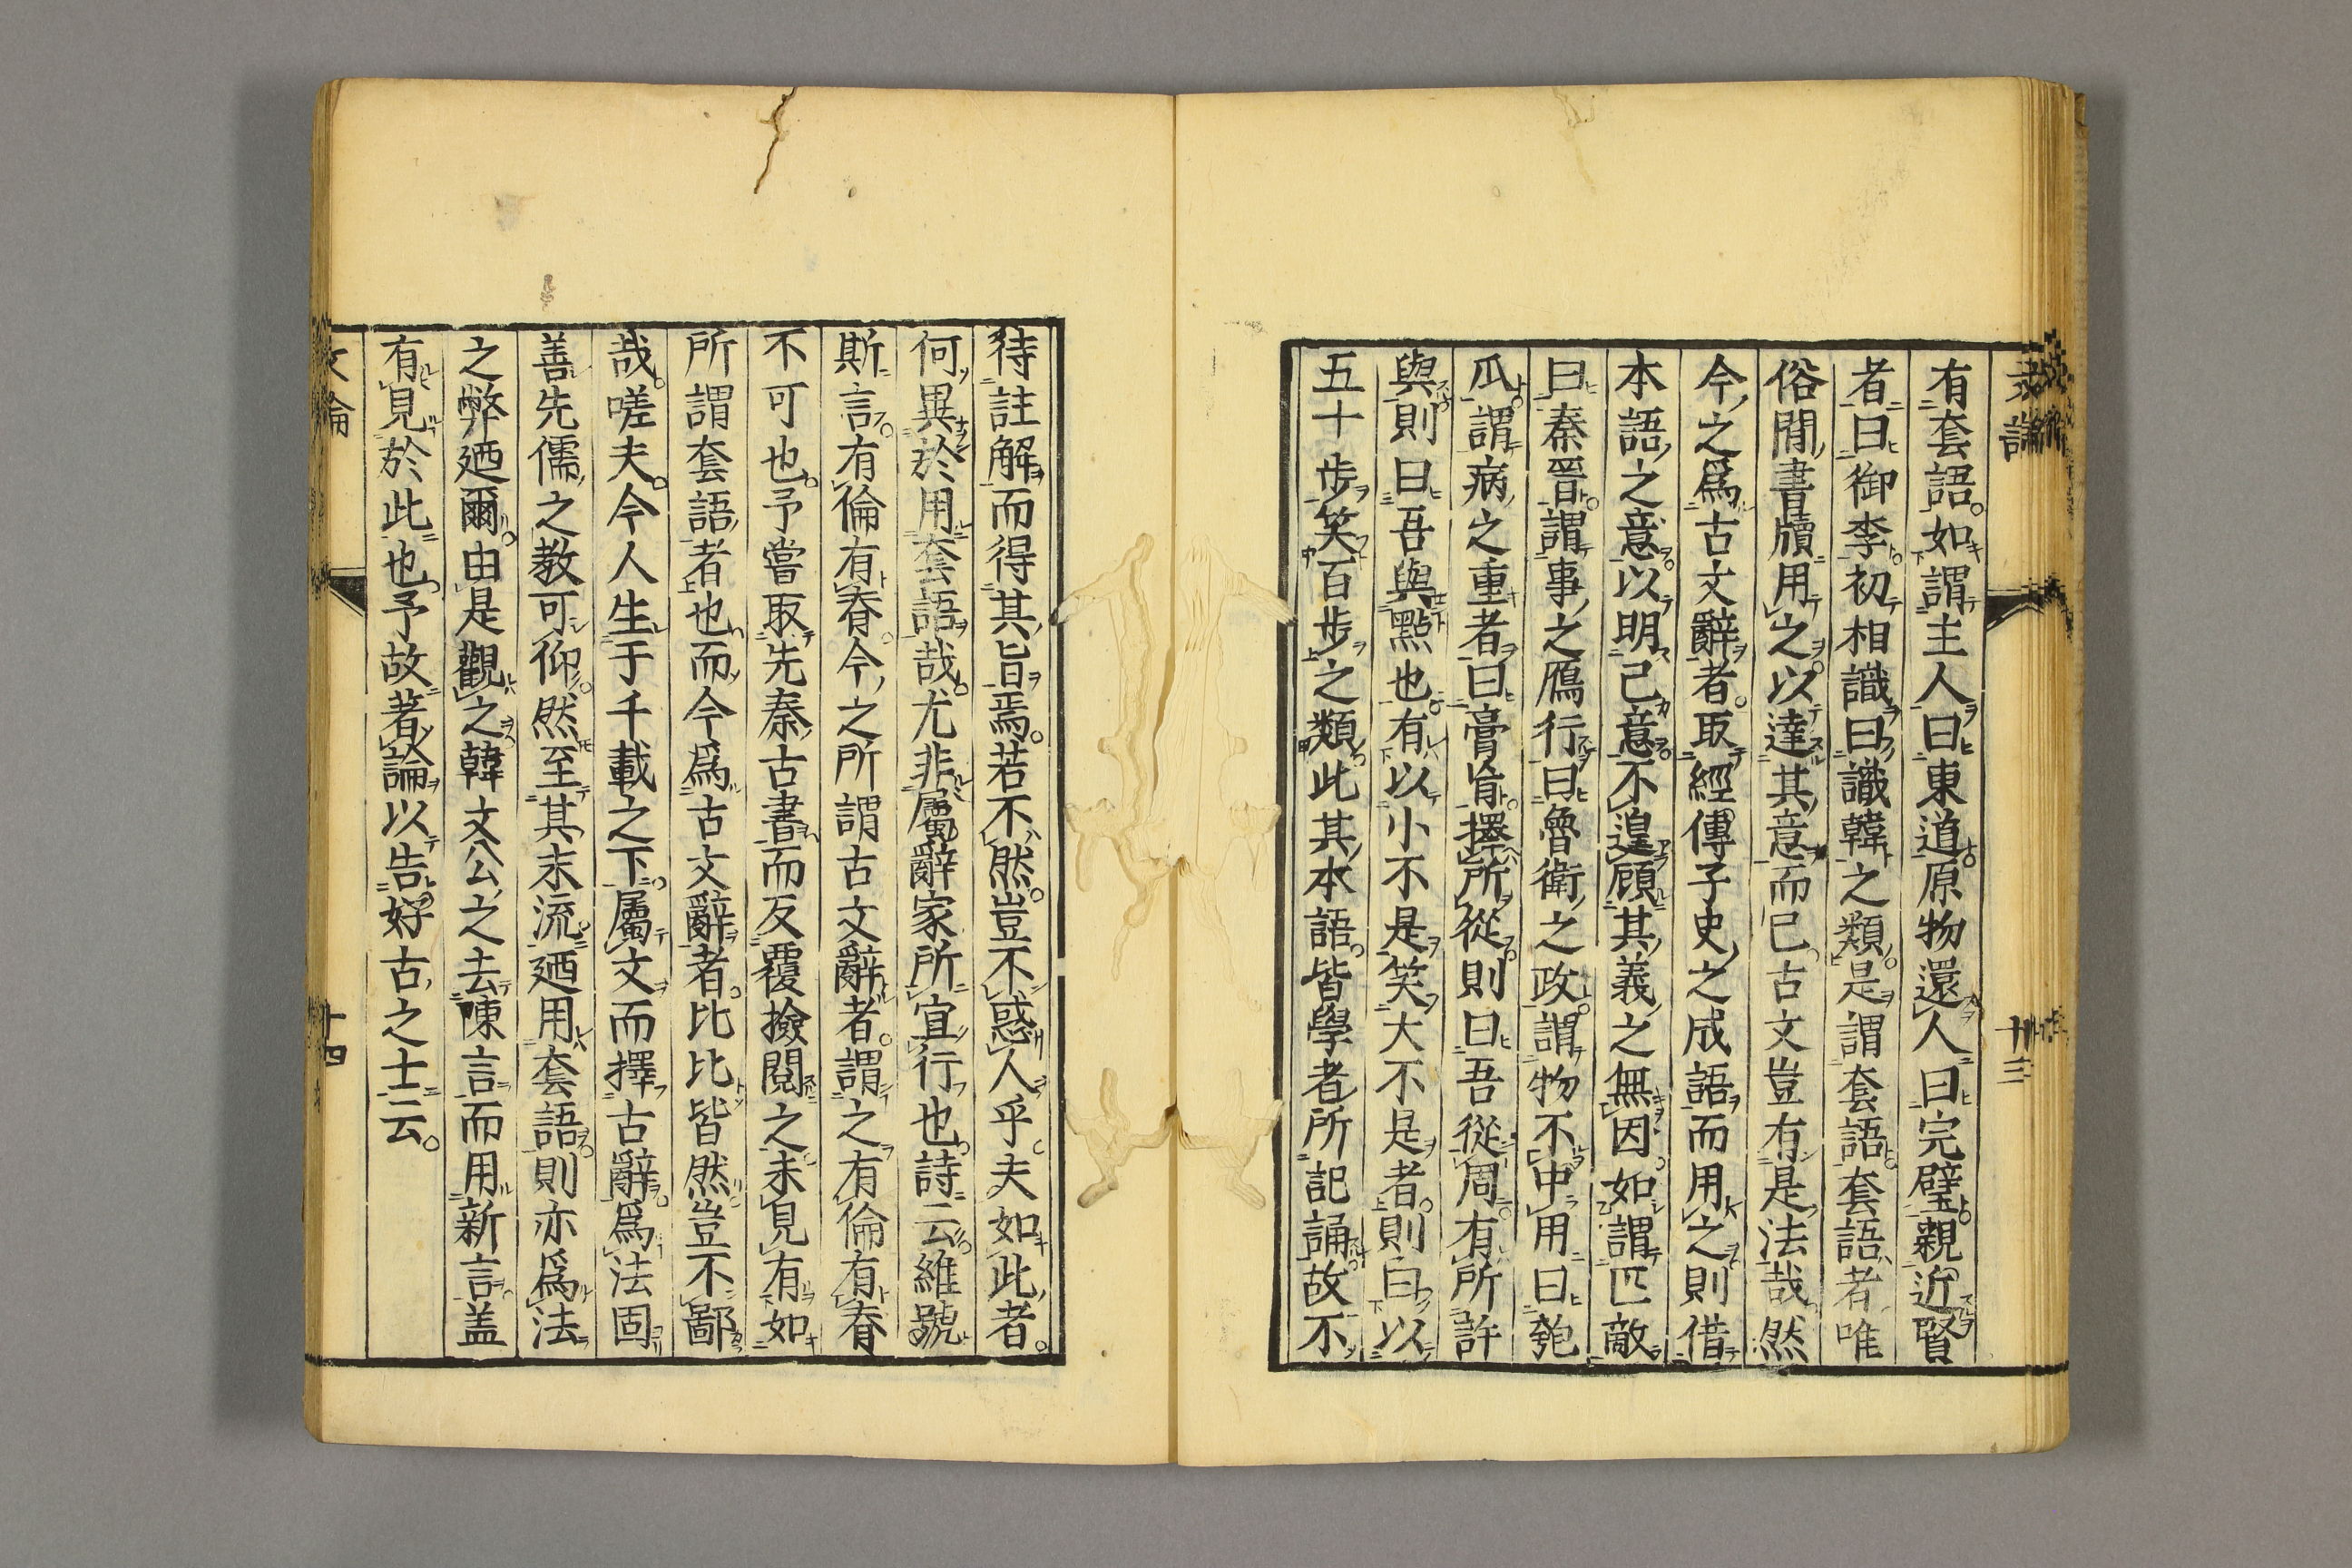 有套語如謂主人曰東道原物還人曰完璧親近賢
者曰御李初相識曰識韓之類是謂套語套語者唯
俗間書牘用之以達其意而已古文豈有是法哉然
今之爲古文辭者取經傳子史之成語而用之則借
本語之意以明己意不遑顧其義之無因如謂匹敵
曰秦晋謂事之鴈行曰魯衛之政謂物不中用曰匏
瓜謂病之重者曰膏肓擇所從則曰吾從周有所許
與則曰吾與點也有以小不是笑大不是者則曰以
五十步笑百步之類此其本語皆學者所記誦故不
待註解而得其旨焉若不然豈不惑人乎夫如此者
何異於用套語哉尤非屬辭家所宜行也詩云維號
斯言有倫有脊今之所謂古文辭者謂之有倫有脊
不可也予嘗取先秦古書而反覆撿閱之未見有如
所謂套語者也而今爲古文辭者比比皆然豈不鄙
哉嗟夫今人生于千載之下屬文而擇古辭爲法固
善先儒之教可仰然至其末流廼用套語則亦爲法
之弊廼爾由是觀之韓文公之去陳言而用新言盖
有見於此也予故著論以告好古之士云
十四